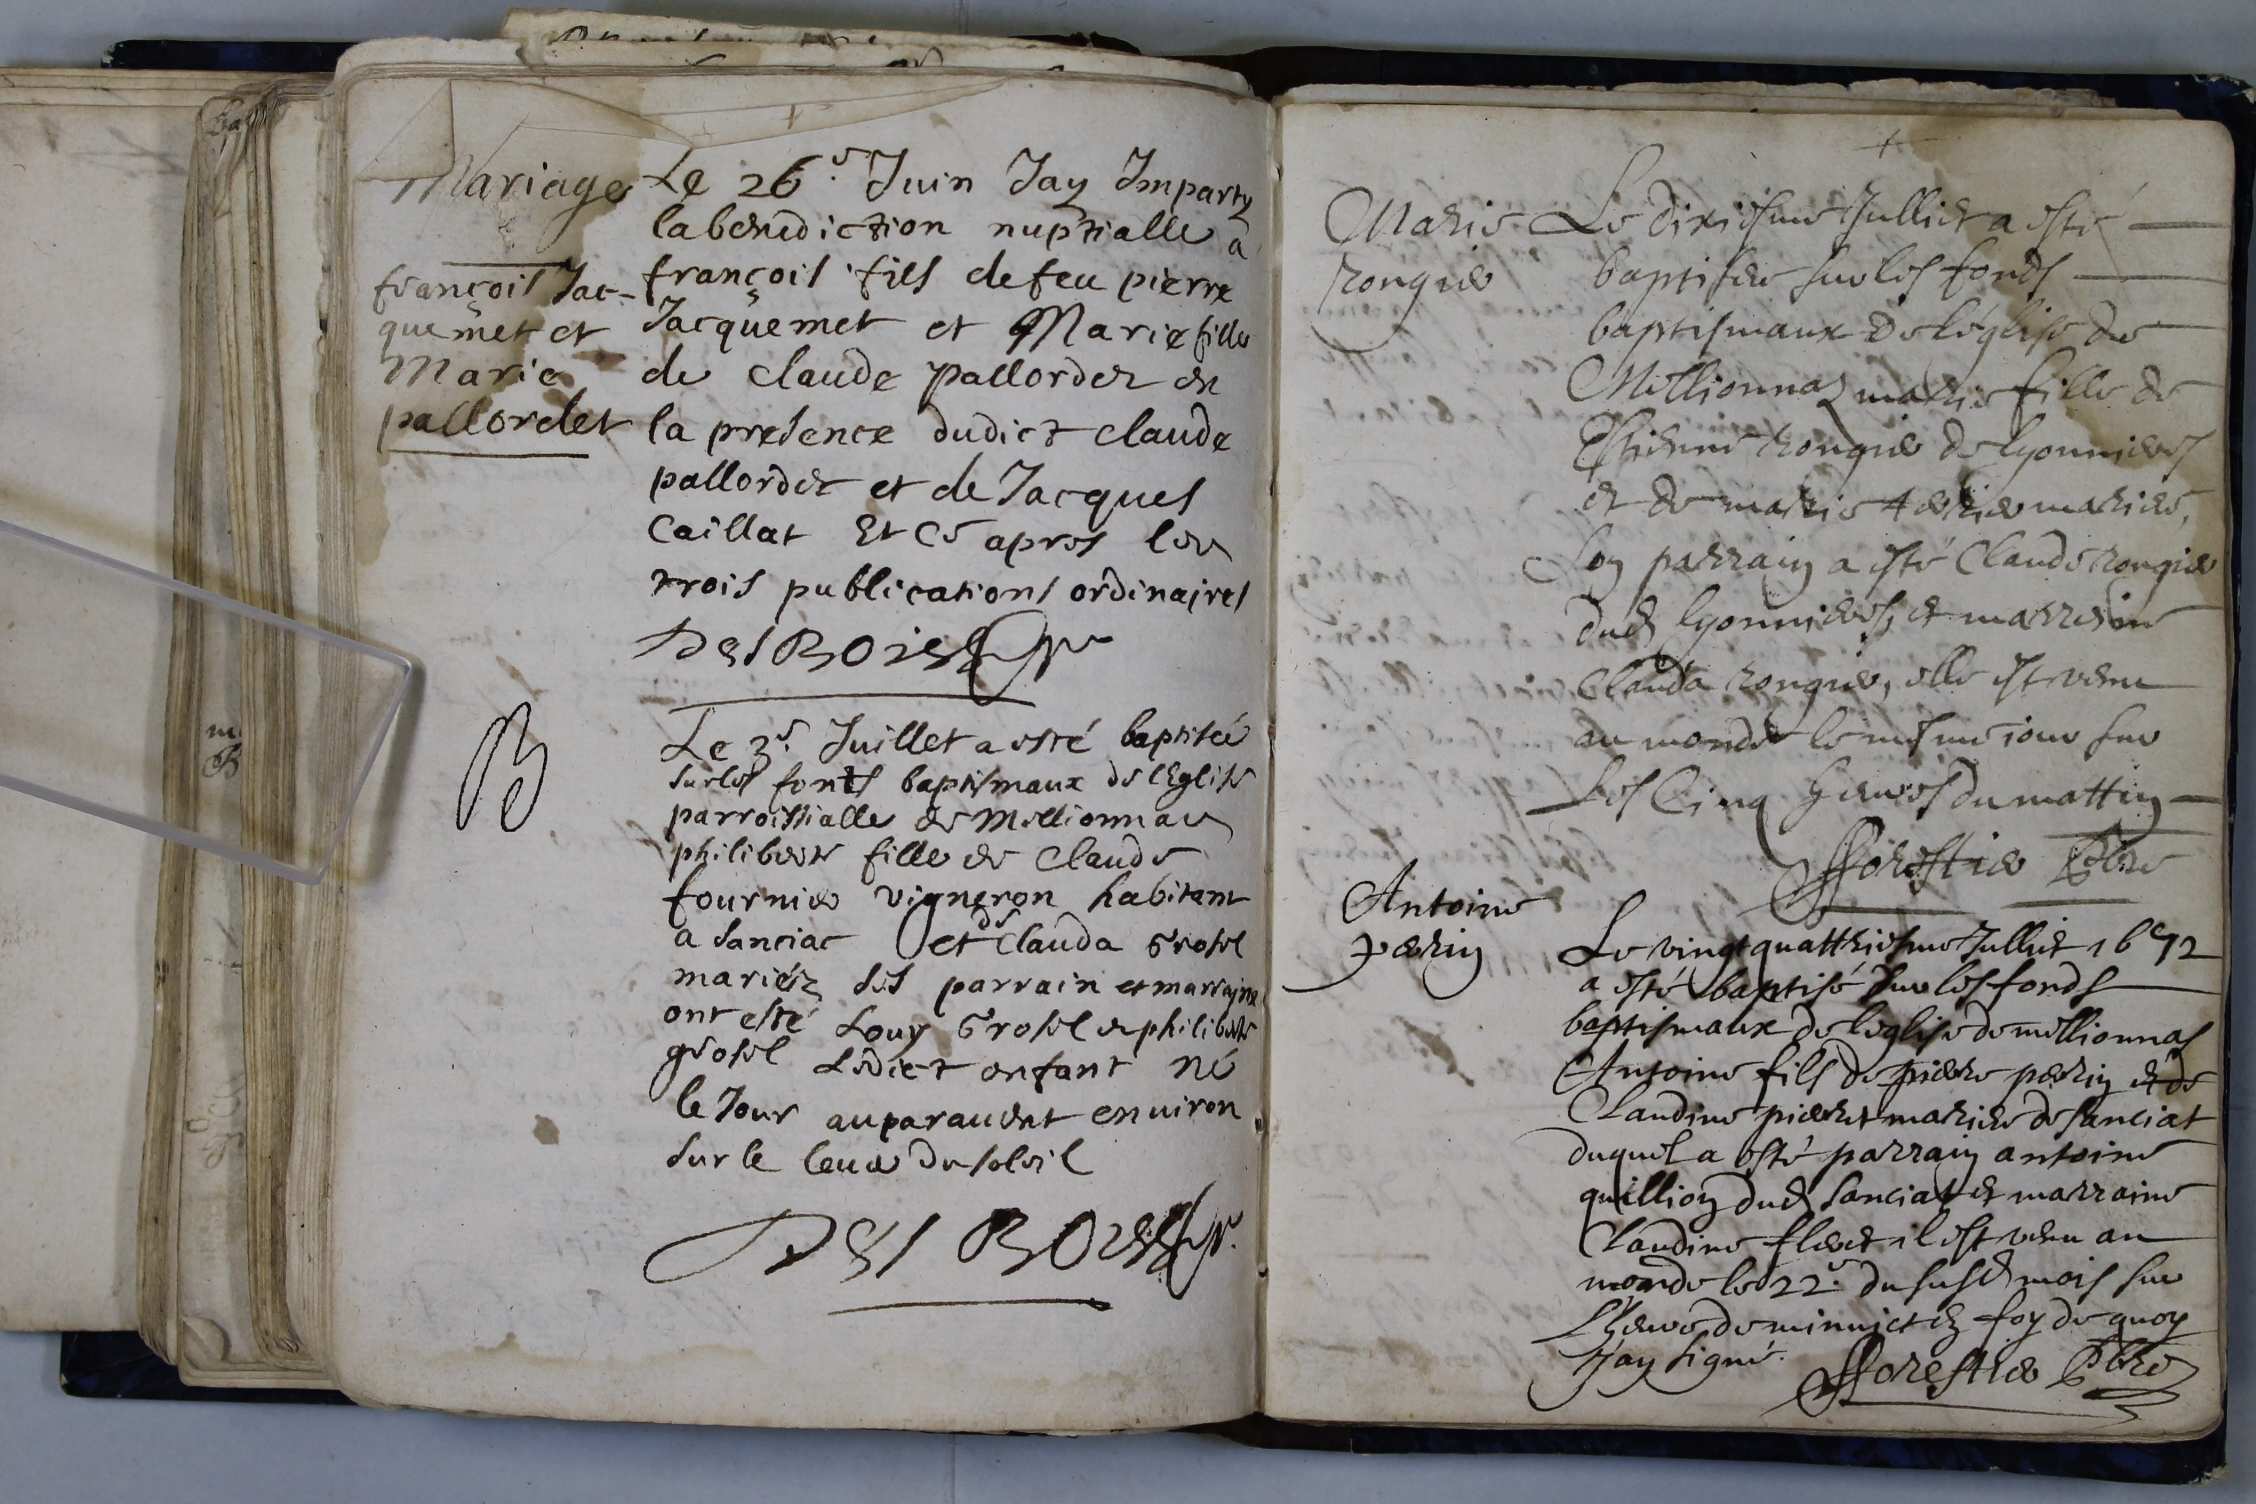 Mariage
françois Jac-
quemet et
Marie
pallordet
Le 26e. Juin Jay Imparty
la benediction nuptialle a
françois fils de feu pierre
Jacquemet et Marie fille
de claude pallordet en
la presence dudict claude
pallordet et de Jacques
Caillat Et Ce apres les
trois publications ordinaires
B
Le 3e. Juillet a esté baptisée
sur les fonts baptismaux de lEglise
parroissialle de Millionnas
philiberte fille de Claude
fournier vigneron habitant
a sanciac et de Clauda Grosel
mariéz ses parrain et marrayne
ont esté Louy Grosel et philiberte
grosel Ledict enfant né
le Jour auparauent enuiron
sur le leuer du soleil
Marie
rongier
Le dixiesme Julliet a esté
baptisée sur les fonds
baptismaux de léglise de
Millionnaz marie fille de
Estienne rongier de lyonnieres
et de marie mariés,
son parrain a esté Claude rongier
dud lyonnieres, et marreine
Clauda rongier, elle est venu
au monde le mesme iour sur
Les Cinq heures du mattin
fforestier Pbre
Antoine
perrin
Le vingt quattriesme Julliet 1672
a esté baptisé sur les fonds
baptismaux de leglise de millionnas
Antoine fils de pierre perrin et de
Claudine mariés de sanciat
duquel a esté parrain antoine
quillion dud sanciat et marraine
Claudine il est venu au
monde le 22e. du susd mois sur
Lheure de minuict en foy de quoy
Jay signé. fforestier Pbre